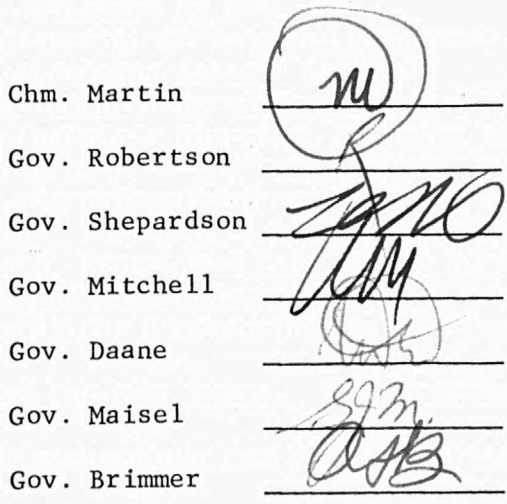 Chm. Martin M
Gov. Robertson
Gov. Shepardson
Gov. Mitchell
Gov. Daane
Gov. Maisel SJM.
Gov. Brimmer AFB